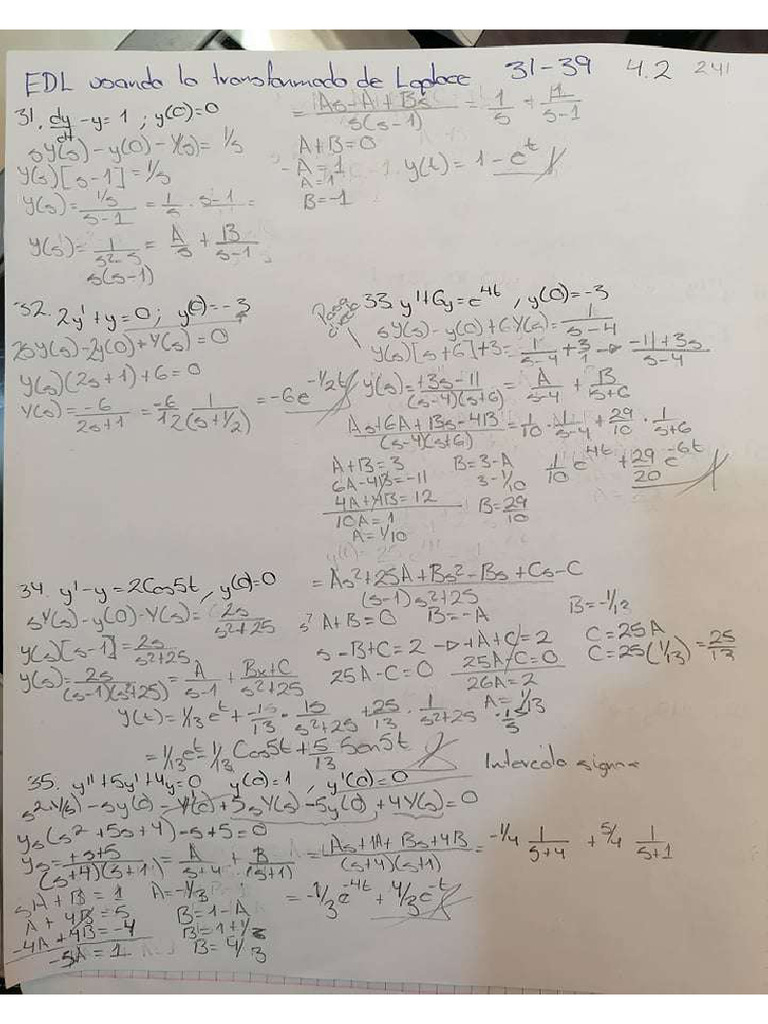 EDL usando la transformada de Laplace 31-39 4.2 241
31. dy/dt - y = 1 ; y(0)=0
sY(s) - y(0) - Y(s) = 1/s
y(s)[s-1] = 1/s
y(s) = (1/s)/(s-1) = 1/s · s-1 =
y(s) = 1/(s²-s) = A/s + B/(s-1)
s(s-1)
= (As-A+Bs)/(s(s-1)) = 1/s +
A+B=0
-A=1
A=1
B=-1
y(t) = 1 - e^t
32. 2y'+y=0; y(0)=-3
2sY(s)-2y(0)+Y(s)=0
y(s)(2s+1)+6=0
Y(s) = -6/(2s+1) = -6/12 1/(s+1/2) = -6e^(-1/2t)
33. y'+6y=e^4t, y(0)=-3
sY(s)-y(0)+6Y(s)=1/(s-4)
y(s)[s+6]+3=1/(s-4)+3/1 → (-11+3s)/(s-4)
y(s)=(+3s-11)/((s-4)(s+6))=A/(s-4)+B/(s+6)
(As+6A+Bs-4B)/((s-4)(s+6))=1/10·1/(s-4)+29/10·1/(s+6)
A+B=3 B=3-A
6A-4B=-11 3-1/10
4A+4B=12 B=29/10
10A=1
A=1/10
1/10 e^4t + 29/20 e^-6t
34. y'-y=2Cos5t, y(0)=0
sY(s)-y(0)-Y(s)=2s/(s²+25)
y(s)[s-1]=2s/(s²+25)
y(s)=2s/((s-1)(s²+25))=A/(s-1)+(Bx+C)/(s²+25)
=(As²+25A+Bs²-Bs+Cs-C)/((s-1)s²+25)
s² A+B=0 B=-A
s -B+C=2 → +A+C=2
25A-C=0 25A-C=0
26A=2
A=1/13
B=-1/13
C=25A
C=25(1/13)=25/13
y(t)=1/13 e^t + -15/13 · 15/(s²+25) + 25/13 · 1/(s²+25) · 1.5/5
=1/13 e^t - 1/13 Cos5t + 5/13 Sen5t
Intercedo signo
35. y''+5y'+4y=0 y(0)=1, y'(0)=0
s²Y(s)-sy(0)-y'(0)+5sY(s)-5y(0)+4Y(s)=0
ys(s²+5s+4)-s+5=0
ys=(+s+5)/((s+4)(s+1))=A/(s+4)+B/(s+1)=(As+1A+Bs+4B)/((s+4)(s+1))=-1/4 1/(s+4) +5/4 1/(s+1)
sA+B=1 A=-1/3
A+4B=5 B=1-A
-4A+4B=-4 B=1+1/3
-3A=1 B=4/3
=-1/3e^-4t + 4/3e^-t